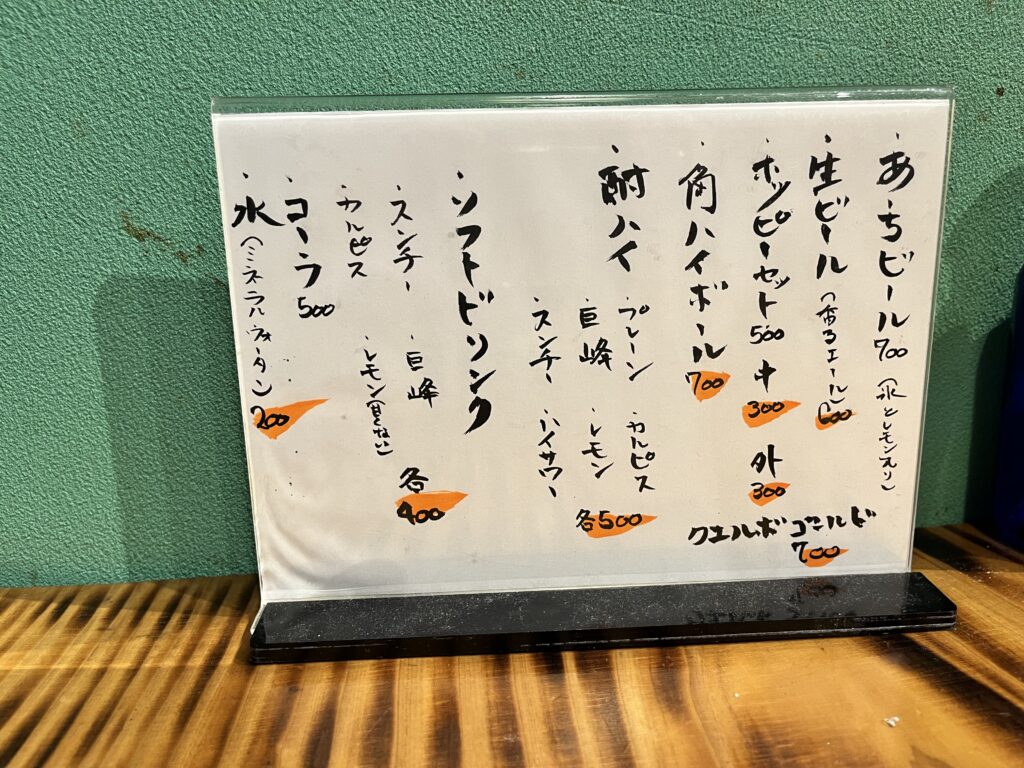 ・あちビール 700 (氷とレモン入り)
・生ビール (香るエール) 600
・ホッピーセット 500 中 300 外 300
・角ハイボール 700
クエルボゴールド 700
・酎ハイ
・プレーン ・カルピス
・巨峰 ・レモン 各500
・スンチー ・ハイサワー
・ソフトドリンク
・スンチー ・巨峰 各400
・カルピス ・レモン(甘くない)
・コーラ 500
・水 (ミネラルウォーター) 200